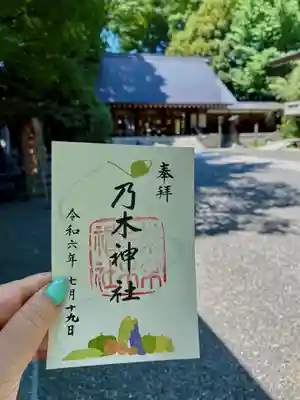 奉拝
乃木神社
令和六年七月十九日